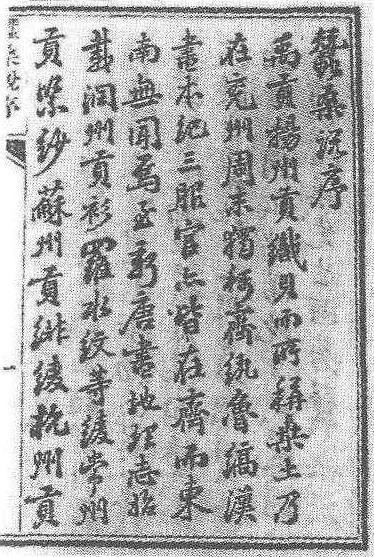 蠶桑說序
禹貢揚州貢織貝而所稱桑土乃
在兗州周末獨稱齊紈魯縞漢
書本紀三服官亦皆在齊而東
南無聞焉至新唐書地理志始
載潤州貢衫羅水紋等綾常州
貢紫紗蘇州貢緋綾杭州貢
一